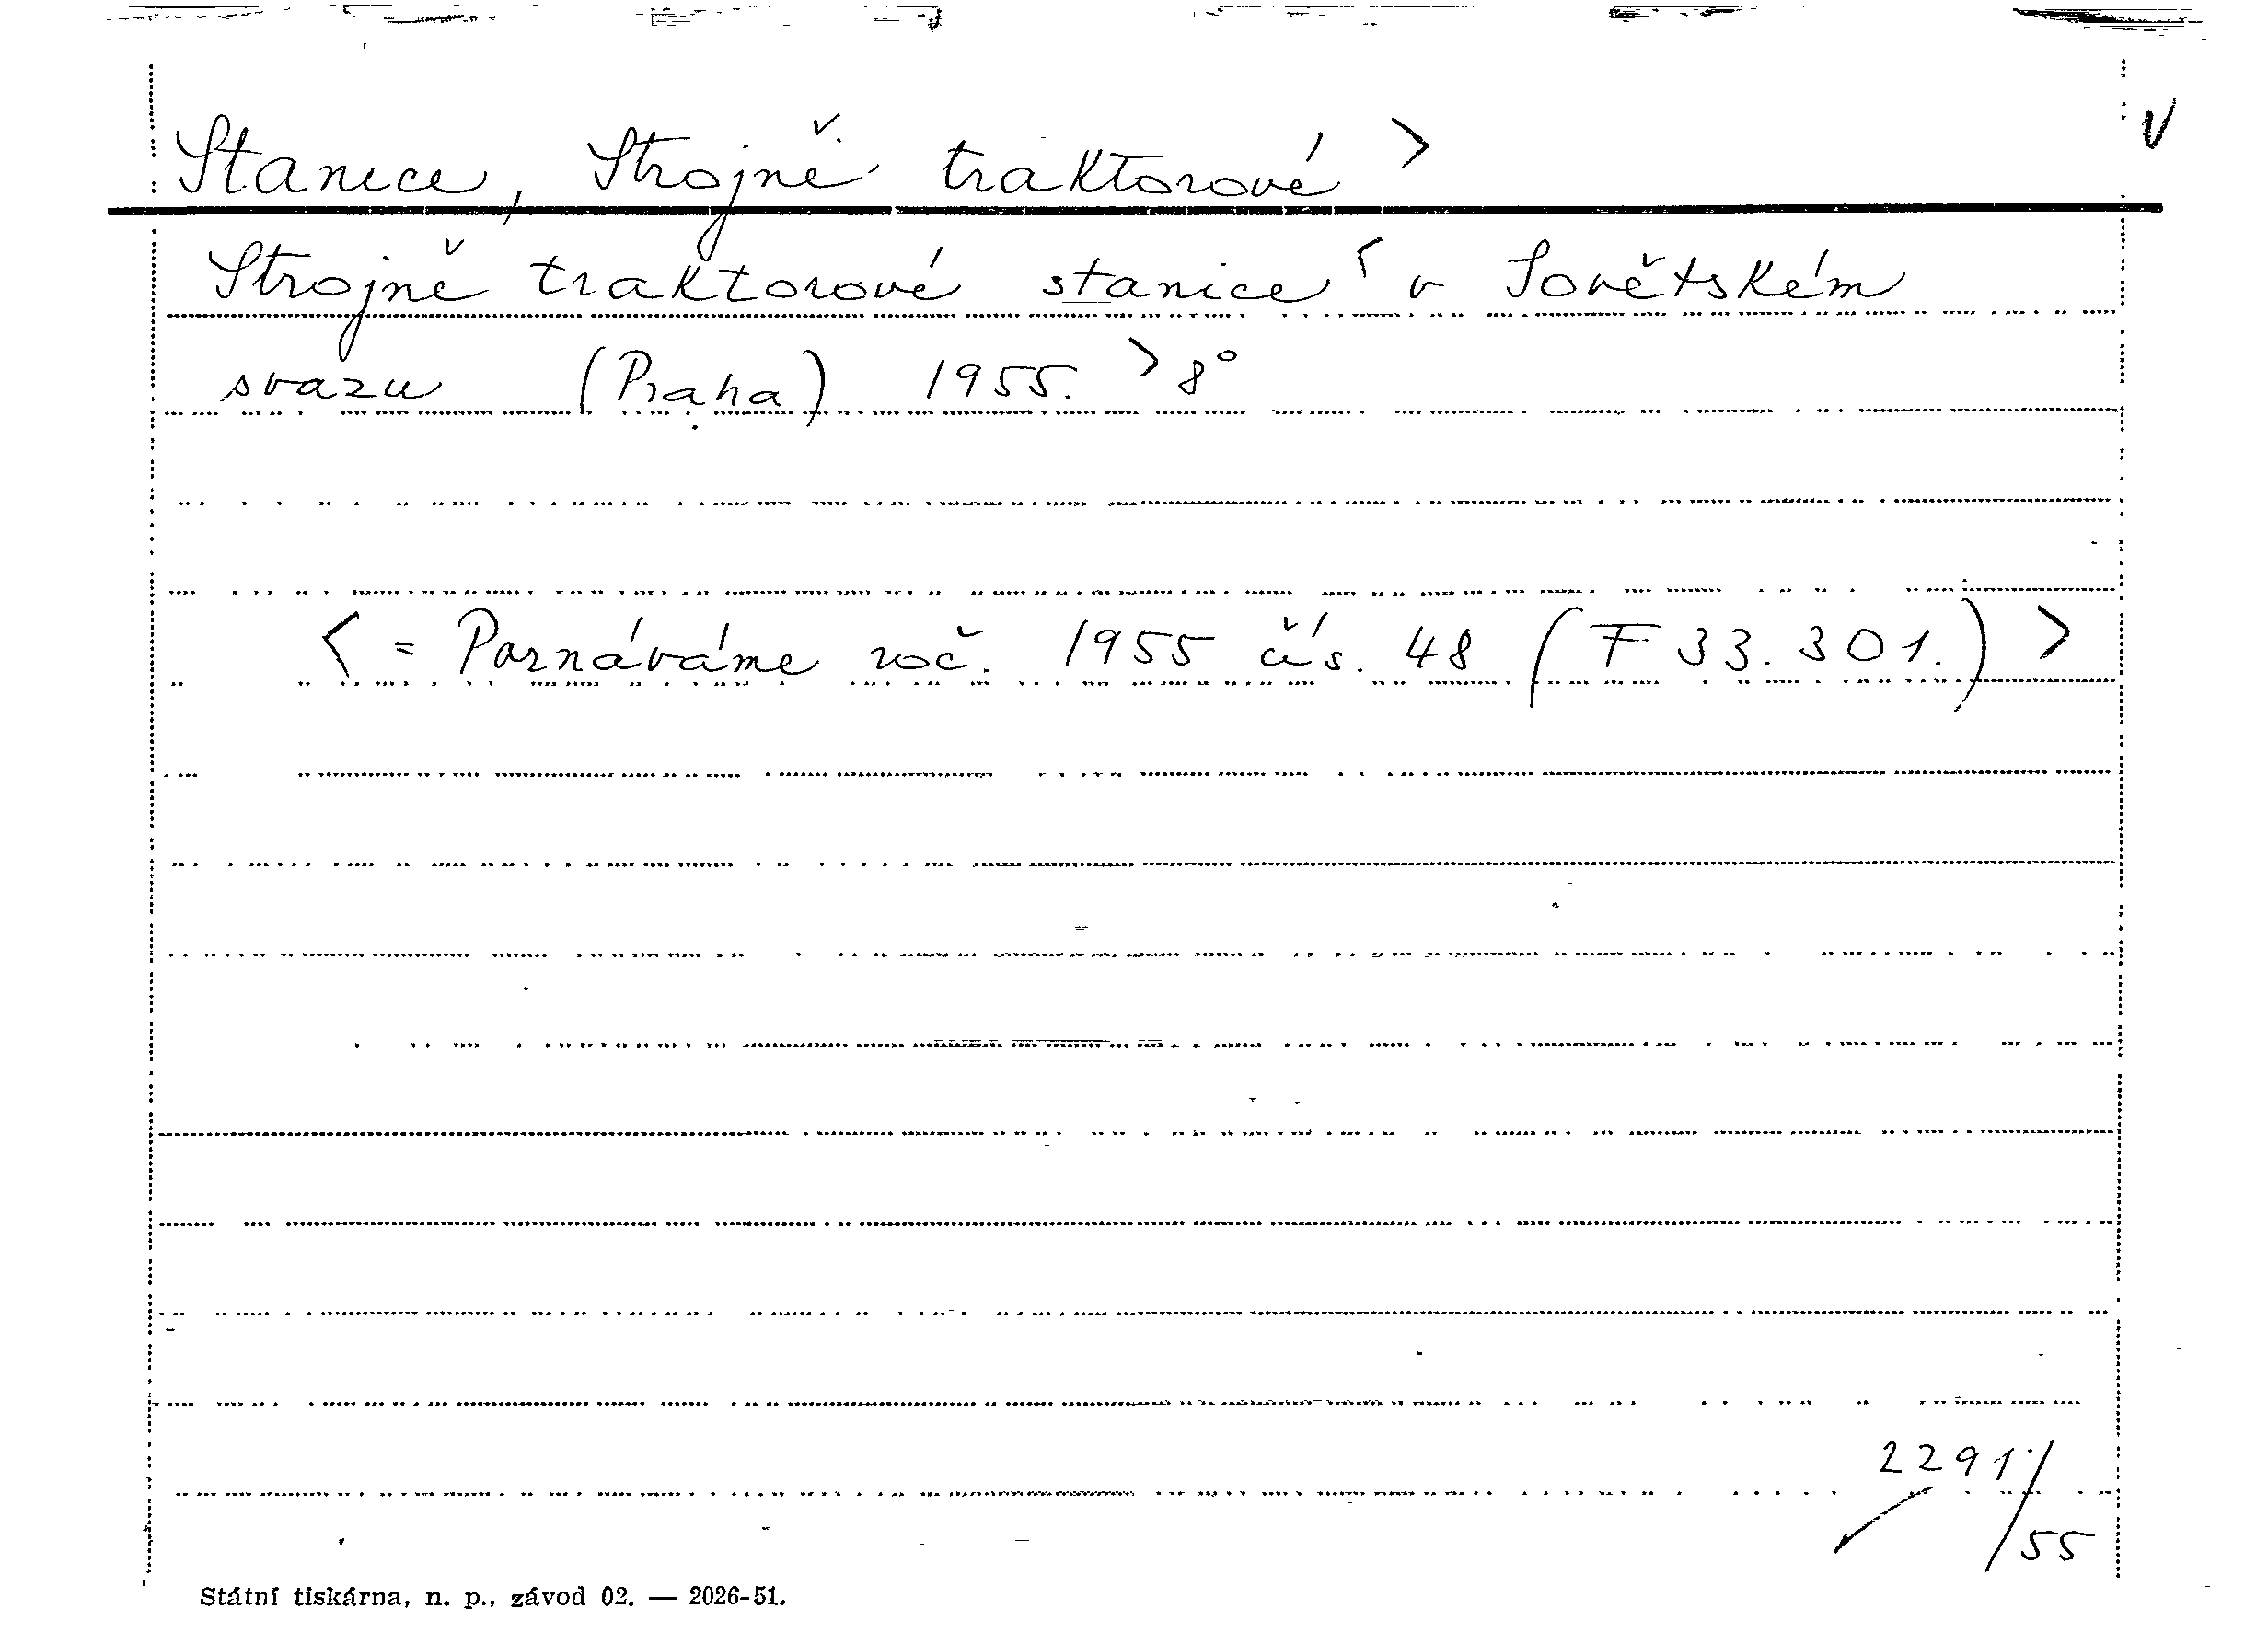 Stanice, Strojně traktorové > V
Strojně traktorové stanice < v Sovětském
svazu (Praha) 1955. > 8°
< = Poznáváme roč. 1955 čís. 48 (F 33.301.) >
2291/
/55
Státní tiskárna, n. p., závod 02. — 2026-51.